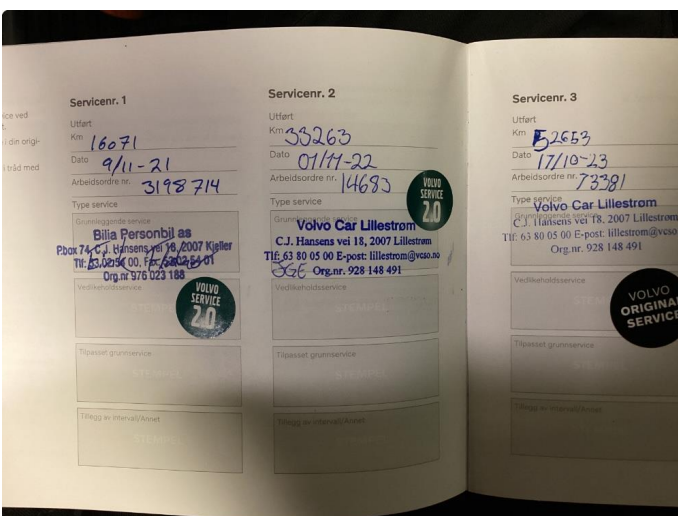 ice ved
t.
i din origi-
i tråd med
Servicenr. 1
Utført
Km 16071
Dato 9/11-21
Arbeidsordre nr. 3198714
Type service
Grunnleggende service
Bilia Personbil as
P.box 74, C.J. Hansens vei 18, 2007 Kjeller
Tlf: 63 02 54 00, Fax:
Org.nr 976 023 188
VOLVO
SERVICE
2.0
Vedlikeholdsservice
STEMPEL
Tilpasset grunnservice
STEMPEL
Tillegg av intervall/Annet
STEMPEL
Servicenr. 2
Utført
Km 33263
Dato 01/11-22
Arbeidsordre nr. 14683
VOLVO
SERVICE
2.0
Type service
Grunnleggende service
Volvo Car Lillestrøm
C.J. Hansens vei 18, 2007 Lillestrøm
Tlf: 63 80 05 00 E-post: lillestrom@vcso.no
Org.nr. 928 148 491
Vedlikeholdsservice
STEMPEL
Tilpasset grunnservice
STEMPEL
Tillegg av intervall/Annet
STEMPEL
Servicenr. 3
Utført
Km 52653
Dato 17/10-23
Arbeidsordre nr. 73381
Type service
Grunnleggende service
Volvo Car Lillestrøm
C.J. Hansens vei 18, 2007 Lillestrøm
Tlf: 63 80 05 00 E-post: lillestrom@vcso
Org.nr. 928 148 491
Vedlikeholdsservice
VOLVO
ORIGINA
SERVICE
Tilpasset grunnservice
STEMPEL
Tillegg av intervall/Annet
STEMPEL